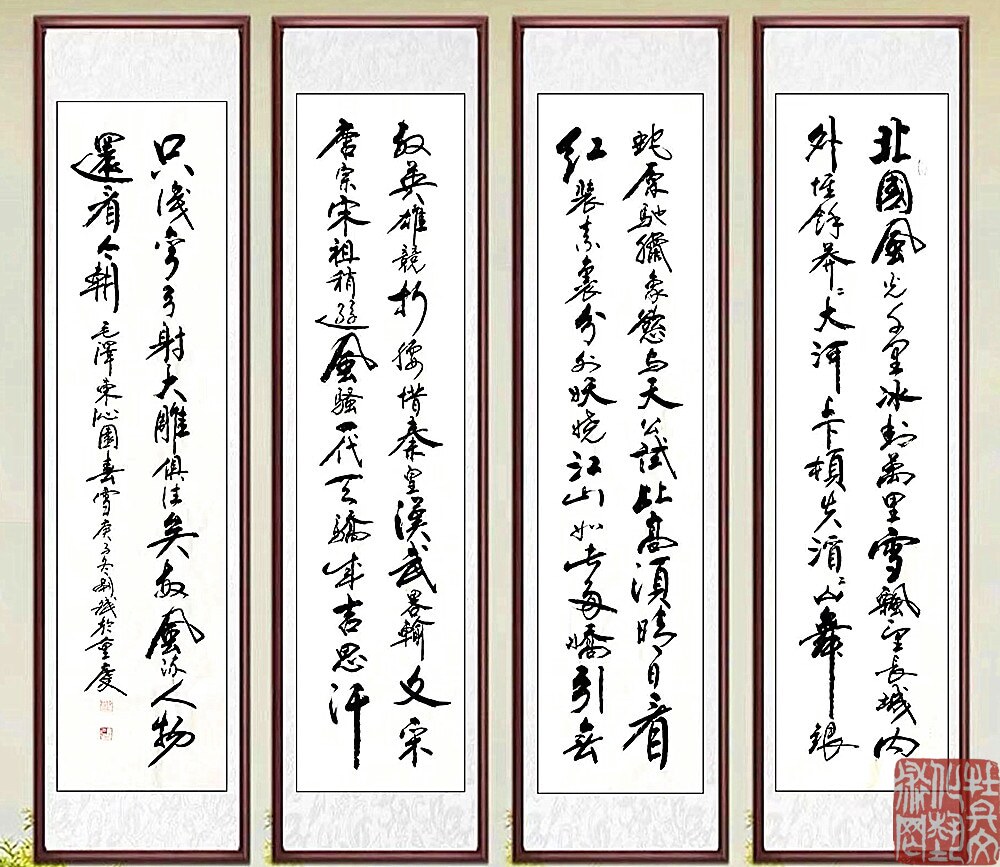 北國風光千里冰封萬里雪飄望長城内
外惟餘莽〻大河上下頓失滔〻山舞銀
蛇原馳臘象慾与天公試比高須晴日看
紅裝素裹分外妖嬈江山如此多嬌引無
数英雄競折腰惜秦皇漢武畧輸文采
唐宗宋祖稍遜風騷一代天驕成吉思汗
只識彎弓射大雕俱往矣数風流人物
還看今朝毛澤東沁園春雪庚子冬於重慶